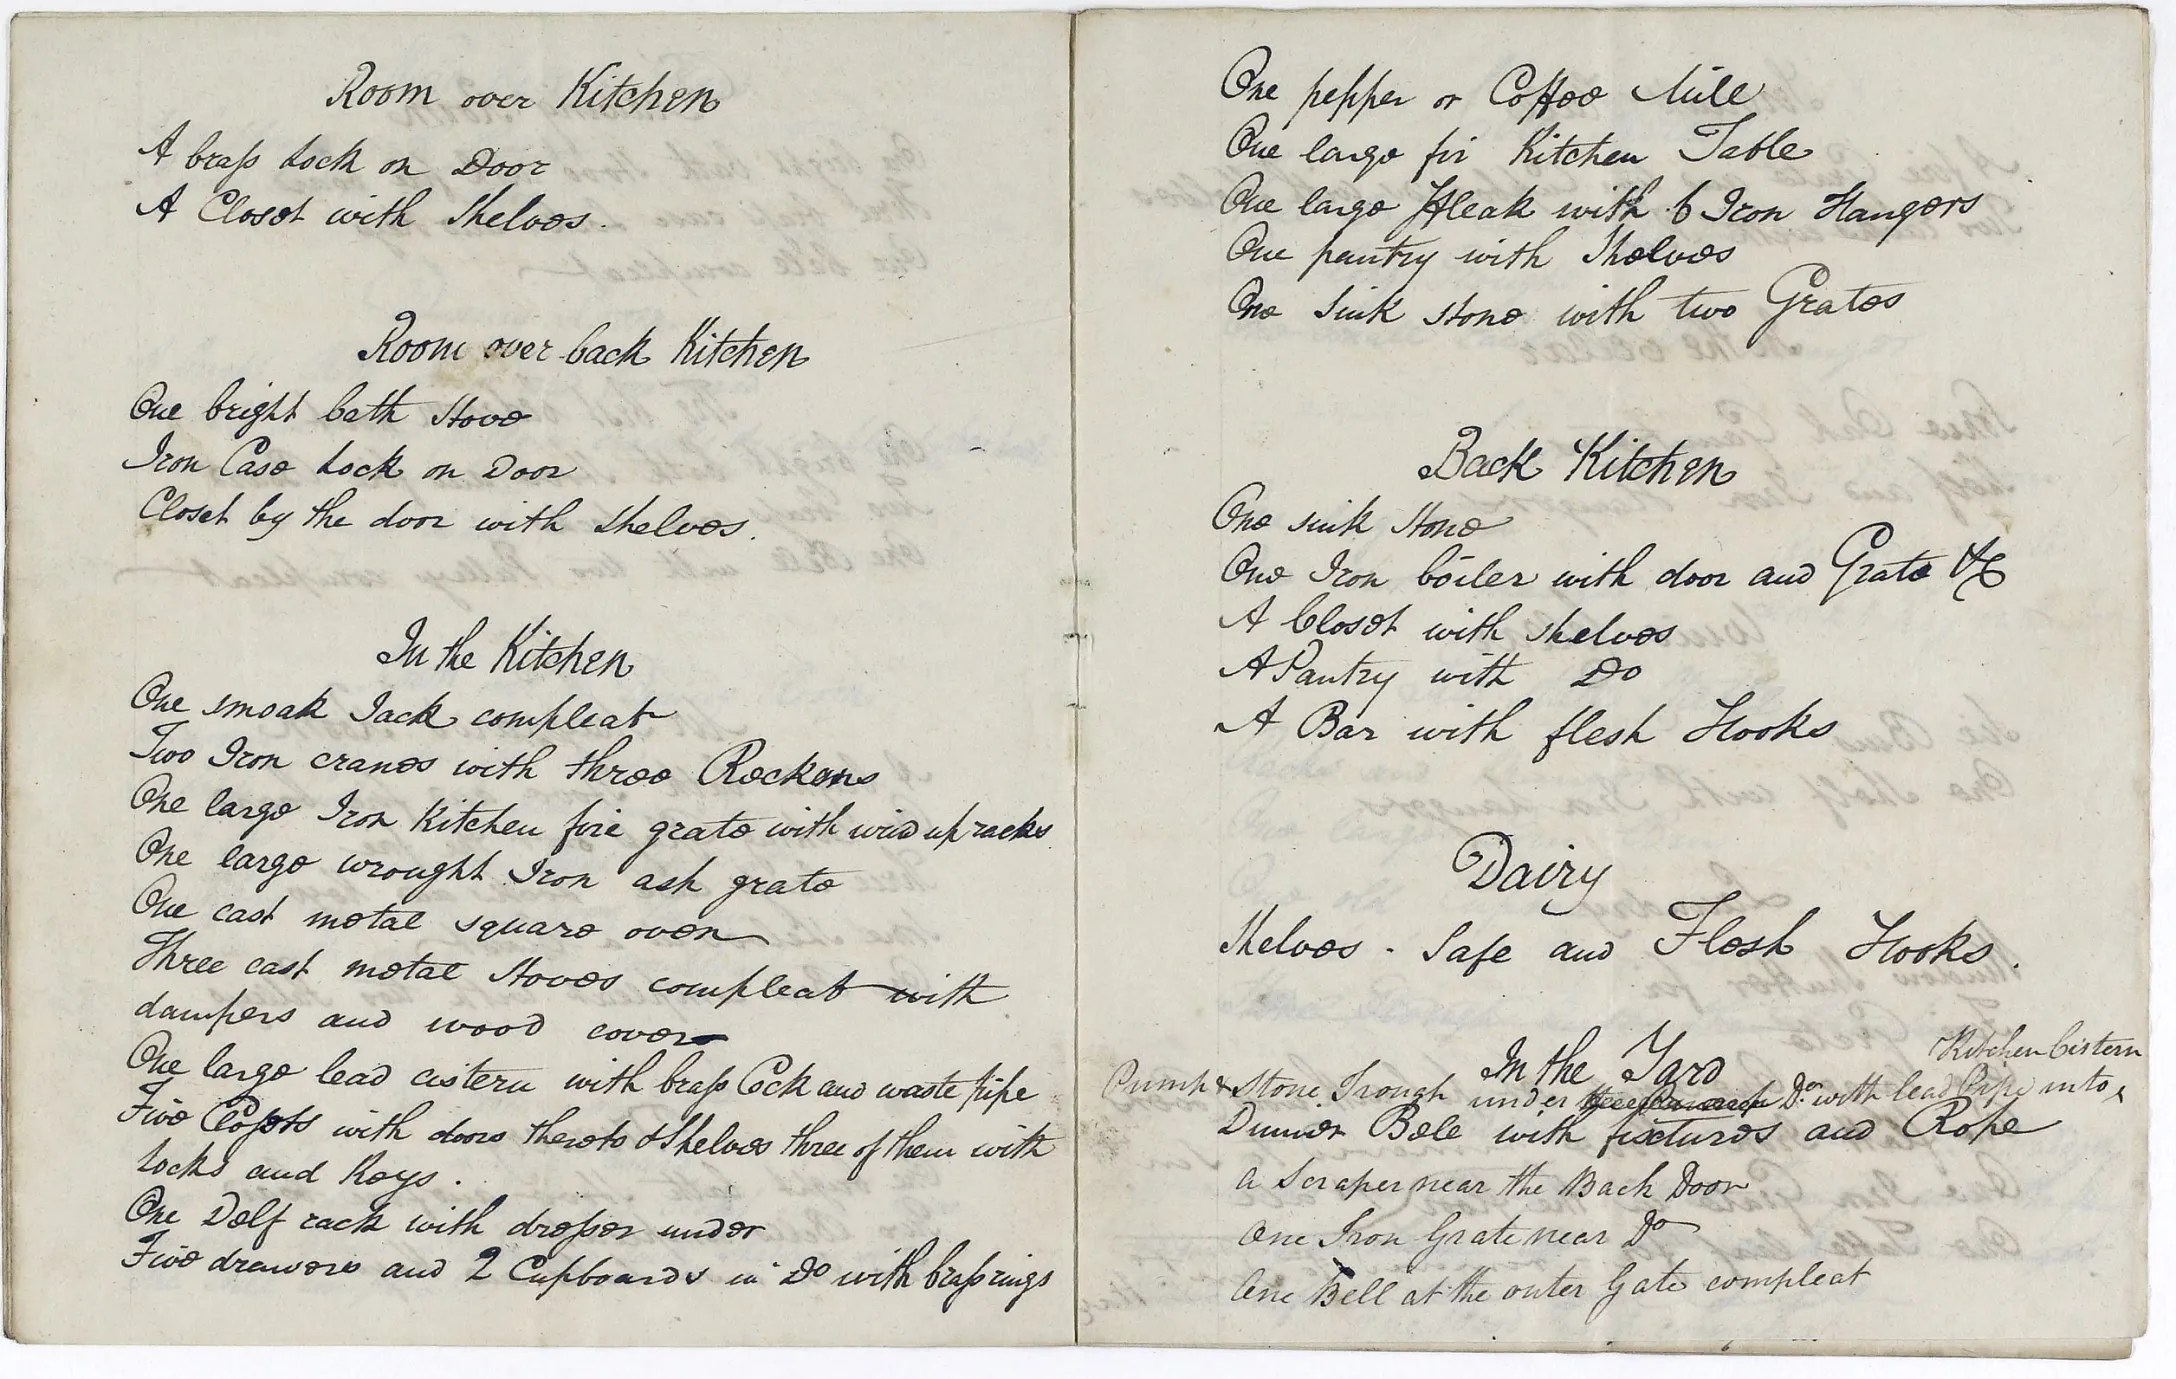 Room over Kitchen
A brass Lock on Door
A Closet with Shelves.
Room over back Kitchen
One bright bath Stove
Iron Case Lock on Door
Closet by the door with shelves.
In the Kitchen
One smoak Jack compleat
Two Iron cranes with three Reckens
One large Iron Kitchen fire grate with wind up racks
One large wrought Iron ash grate
One cast metal square oven
Three cast metal Stoves compleat with
dampers and wood covers
One large lead cistern with brass Cock and waste pipe
Five Closets with doors thereto & Shelves three of them with
Locks and Keys.
One Delf rack with dresser under
Five drawers and 2 Cupboards in Do with brass rings
One pepper or Coffee Mill
One large fir Kitchen Table
One large fleak with 6 Iron Hangers
One pantry with Shelves
One Sink Stone with two Grates
Back Kitchen
One sink Stone
One Iron boiler with door and Grate &c
A Closet with shelves
A Pantry with Do
A Bar with flesh Hooks
Dairy
Shelves - Safe and Flesh Hooks.
In the Yard
Kitchen Cistern
Pump & Stone Trough under Do. with lead Pipe into
Dinner Bell with fixtures and Rope
a Scraper near the Back Door
One Iron Grate near Do
One Bell at the outer Gate compleat